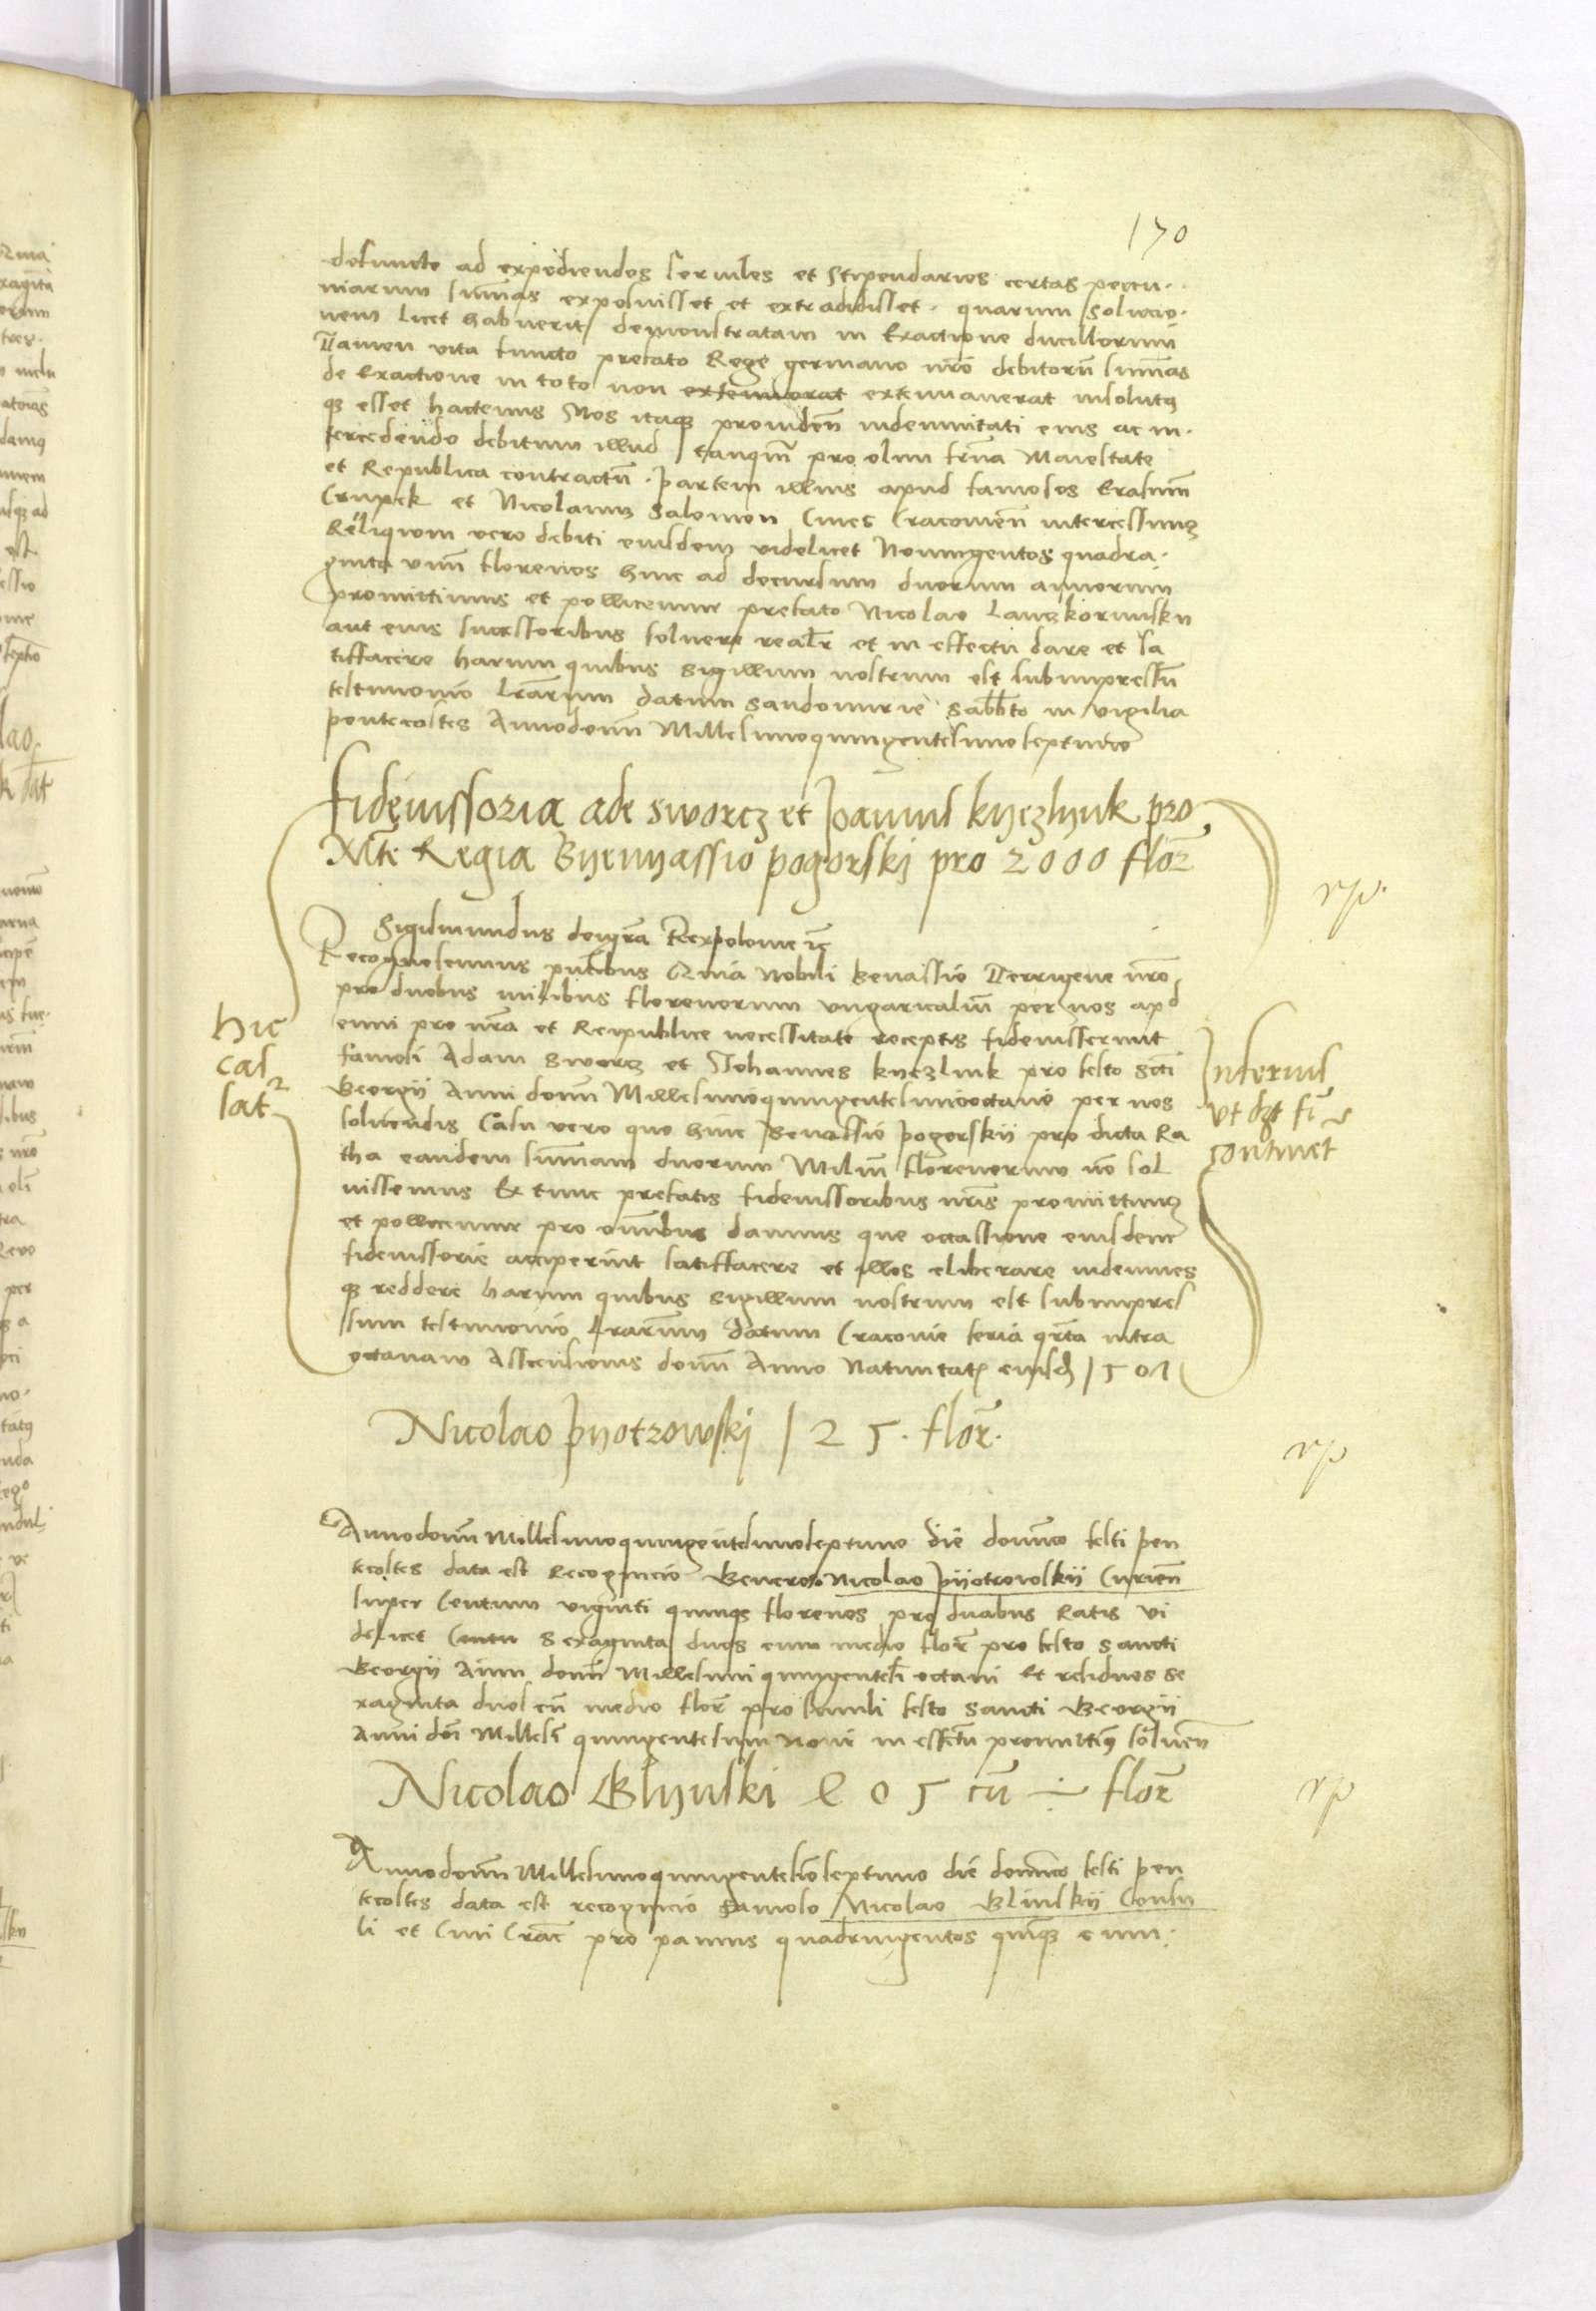 170
defuncto ad expediendos seruiles et Stipendarios certas pecu-
niarum sum̄as exposuisset et extradidisset. quarum solucio-
nem licet habuerit demonstratam in Exactione ducillorum
Tamen vita functo prefato Rege germano nr̄o debitorū sum̄as
de Exactione in toto non extenuorat extenuauerat insolutus
q3 esset hactenus Nos itaq3 prouiden̄ indemnitati eius ac in-
tercedendo debitum illud tanqm̄ pro olim frn̄a Maiestate
et Republica contractū. partem illius apud famosos Erasmū
Crupek et Nicolaum Salomon Ciues Cracouien̄ intercessimus
Reliquum vero debiti eiusdem videlicet Noningentos quadra-
ginta vnū florenos hinc ad decursum duorum annorum
promittimus et pollicemur prefato Nicolao Lanczkorunskij
aut eius successoribus soluere realr̄ et in effectu dare et sa
tiffacere harum quibus sigillum nostrum est subimpressū
testimonio lr̄arum datum Sandomirie Sabb̄to in vigilia
pentecostes Annodomī Millesimoquingentesimoseptimo
fideiussoria ade sworcz et Joannis knczlynk pro
M̄te Regia Byenyassio pogorskj pro 2000 flor̄
rp.
Sigismundus dei gr̄a Rex polonie ꝛc̄
Recognoscimus pn̄tibus Quia Nobili Benassio Terrigene nr̄o
pro duobus milibus florenorum vngaricaliū per nos apd
eum pro nr̄a et Reipublice necessitate receptis fideiusserunt
famosi Adam sworcz et Johannes knczlink pro festo sc̄ti
Georgij Anni domī Millesimoquingentesimooctauo per nos
soluendis Casu vero quo hinc Benassio pogorskij pro dicta Ra
tha eandem sum̄am duorum Miliū florenorum nō sol
uissemus Ex tunc prefatis fideiussoribus nr̄is promittimus
et pollicemur pro om̄ibus damnis que occassione eiusdem
fideiussorie acciperint satiffacere et illos eliberare indemnes
q3 reddere harum quibus sigillum nostrum est subimpres
sum testimonio lr̄arum datum Cracouie feria qr̄ta intra
octauam Ascensionis domī Anno Natiuitatis eiusd 1507
hic
cas
sat
Inferius
vt continet
Nicolao pyotrowskj 125. flor̄.
rp
Annodomī Millesimoquingentesimoseptimo die domīco festi pen
tecostes data est Recognicio Generoso Nicolao pijotrowskij Curien̄
super Centum viginti quinq3 florenos pro duabus Ratis vi
delicet Centu Sexaginta duos cum medio flor̄ pro festo sancti
Georgij Anni domī Millesimi quingentesī octaui Et residuos se
xaginta duos cū medio flor̄ pro simili festo sancti Georgij
Anni dnī Millesī quingentesimi Noni in effectu promittimus soluen̄
Nicolao Glynski 405 cū ÷ flor̄
rp
Annodomī Millesimoquingentesīoseptimo die domīco festi pen
tecostes data est recognicio famoso Nicolao Glinskij Consu
li et Ciui Crac̄ pro pannis quadringentos quīq3 cum.